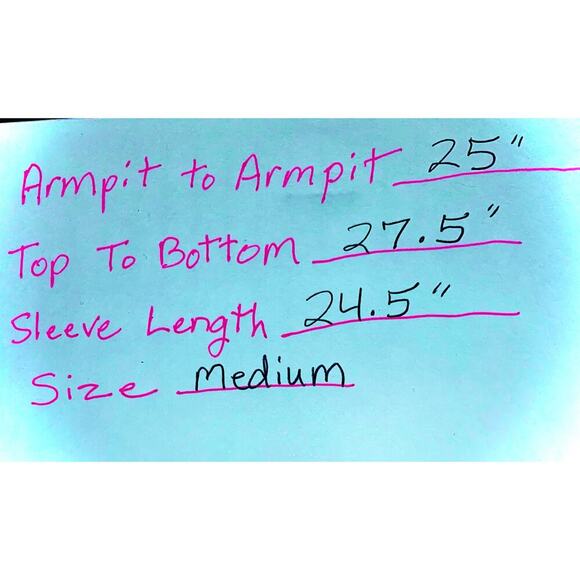 Armpit to Armpit 25"
Top To Bottom 27.5"
Sleeve Length 24.5"
Size Medium